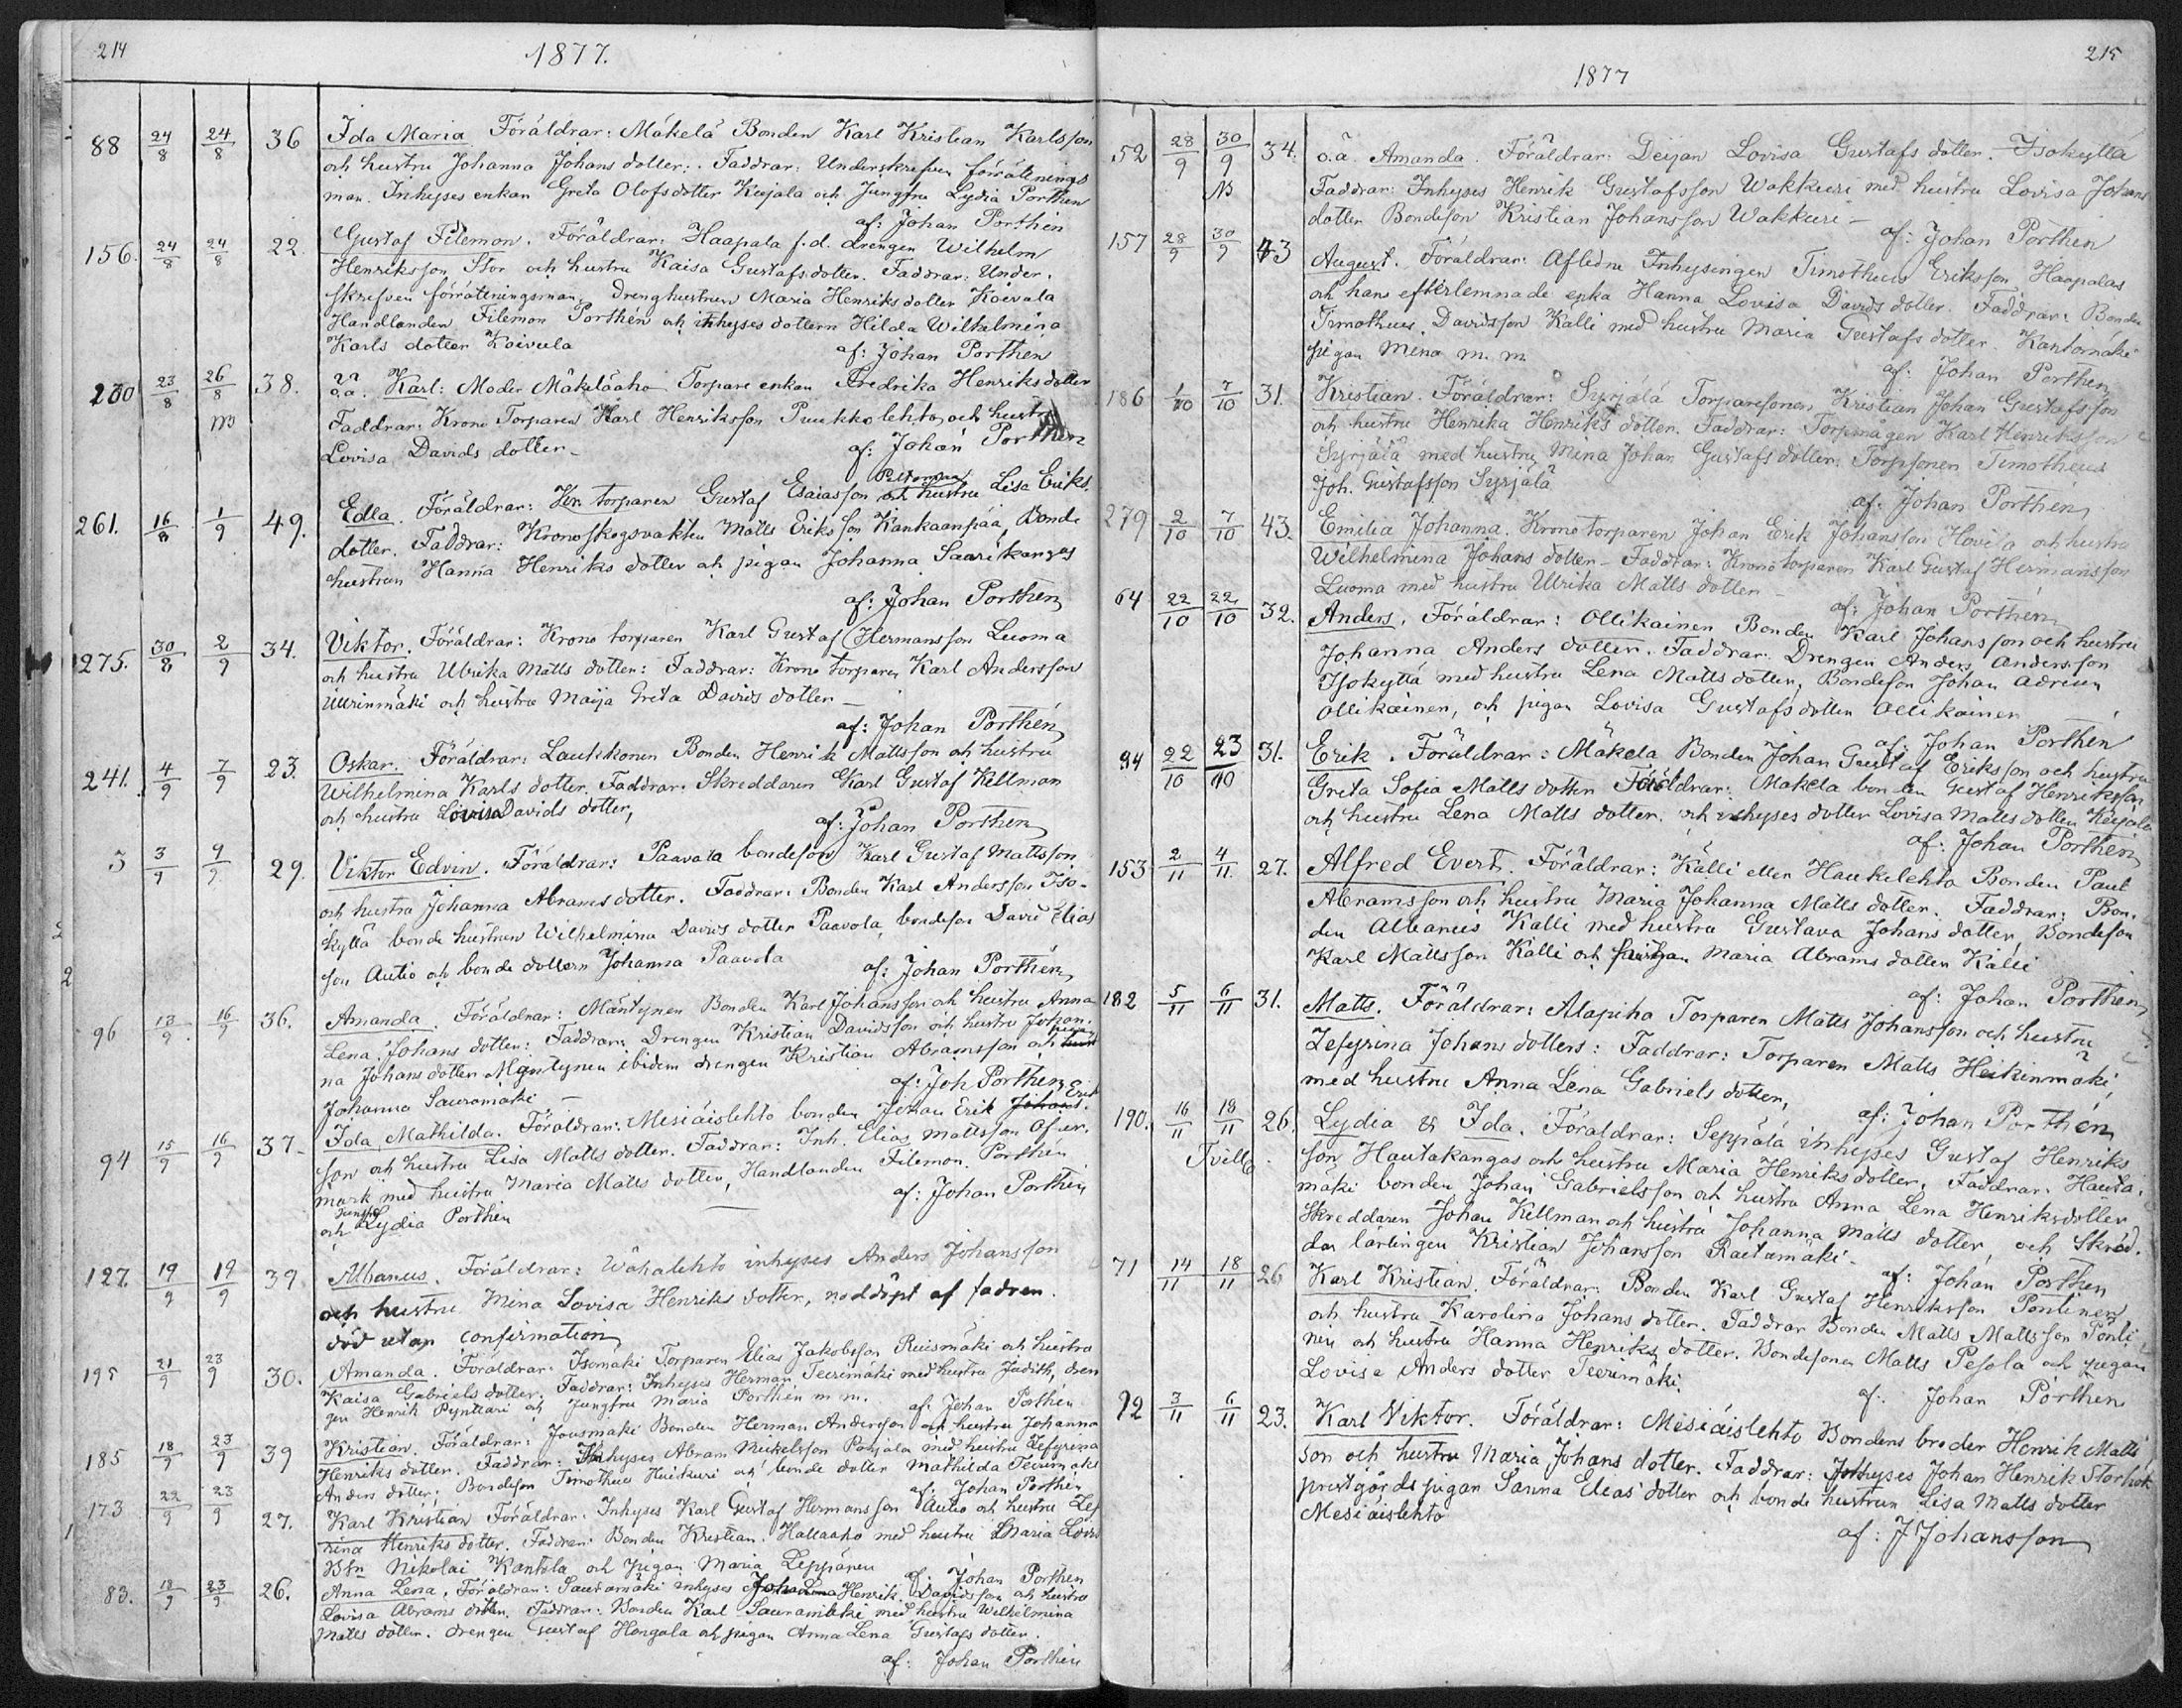 214
1877.
88 24/8 24/8 36 Ida Maria Föräldrar: Mäkelä Bonden Karl Kristian Karlsson
och hustru Johanna Johans dotter. Faddrar: Underskrefven förrättnings
man. Inhyses enkan Greta Olofsdotter Kujala och Jungfru Lydia Porthen
af: Johan Porthén
156. 24/8 24/8 22. Gustaf Filemon. Föräldrar: Haapala f.d. drengen Wilhelm
Henriksson Stor och hustru Kaisa Gustafsdotter. Faddrar: Under-
skrefven förrättningsman, Drenghustrun Maria Henriksdotter Koivula
Handlanden Filemon Porthén och inhyses dottern Hilda Wilhelmina
Karls dotter Koivula af: Johan Porthén
230 23/8 26/8 38. o.ä. Karl: Moder Mäkeläaho Torpare enkan Fredrika Henriks dotter
NB Faddrar: Krono Torparen Karl Henriksson Puukko lehto och hustru
Lovisa Davids dotter - af: Johan Porthén
261. 16/8 1/9 49. Edla. Föräldrar: Kr. torparen Gustaf Esaiasson och hustru Lisa Eriks
dotter. Faddrar: Kronoskogsvakten Matts Eriksson Kankaanpää, Bonde
hustrun Hanna Henriks dotter och pigan Johanna Saarikangas
af: Johan Porthén
275. 30/8 2/9 34. Viktor. Föräldrar: Krono torparen Karl Gustaf Hermansson Luoma
och hustru Ulrika Matts dotter: Faddrar: Krono torparen Karl Andersson
och hustru Maija Greta Davids dotter -
af: Johan Porthén
241. 4/9 7/9 23. Oskar. Föräldrar: Lautikonen Bonden Henrik Mattsson och hustru
Wilhelmina Karls dotter. Faddrar: Skreddaren Karl Gustaf Killman
och hustru Lovisa Davids dotter,
af: Johan Porthén
3 3/9 9/9 29. Viktor Edvin. Föräldrar: Paavola bondeson Karl Gustaf Mattsson
och hustru Johanna Abrams dotter. Faddrar: Bonden Karl Andersson Iso-
kyttä bonde hustrun Wilhelmina Davids dotter Paavola, bondeson David Elias
son Autio och bonde dottern Johanna Paavola
af: Johan Porthén
96 13/9 16/9 36. Amanda. Föräldrar: Mäntynen Bonden Karl Johansson och hustru Anna
Lena Johans dotter: Faddrar: Drengen Kristian Davidsson och hustru Johan-
na Johans dotter Mäntynen ibidem drengen Kristian Abramsson och pigan
Johanna Sauramäki - af: Joh Porthén
94 15/9 16/9 37. Ida Mathilda. Föräldrar: Mesiäislehto bonden Johan Erik
son och hustru Lisa Matts dotter. Faddrar: Inh. Elias Mattsson
med hustru Maria Matts dotter, Handlanden Filemon Porthén
och Jungfr Lydia Porthén af: Johan Porthén
127. 19/9 19/9 39 Albanus. Föräldrar: Wähälehto inhyses Anders Johansson
och hustru Mina Lovisa Henriks dotter, nöddöpt af fadren.
död utan confirmation
195 21/9 23/9 30. Amanda. Föräldrar: Isomäki Torparen Elias Jakobsson Ruismäki och hustru
Kaisa Gabriels dotter. Faddrar: Inhyses Herman Teerimäki med hustru Judith, dren
gen Henrik Pynttäri och Jungfru Maria Porthén m m. af: Johan Porthén
185 18/9 23/9 39 Kristian. Föräldrar: Jousmäki Bonden Herman Andersson och hustru Johanna
Henriks dotter. Faddrar: Inhyses Abram Mickelsson Pohjala med hustru Zefyrina
Anders dotter: Bondeson Timotheus och bonde dotter Mathilda Teerimäki
af: Johan Porthén
173 22/9 23/9 27. Karl Kristian Föräldrar: Inhyses Karl Gustaf Hermansson Autio och hustru Zef
rina Henriks dotter. Faddrar: Bonden Kristian Hallaaho med hustru Maria Lovis
Bsn Nikolai Kantola och pigan Maria Leppänen
af: Johan Porthen
83. 18/9 23/9 26. Anna Lena. Föräldrar: Sautamäki inhyses Henrik Davidsson och hustru
Lovisa Abrams dotter. Faddrar: Bonden Karl Sauramäki med hustru Wilhelmina
Matts dotter. drengen Gustaf Hongala och pigan Anna Lena Gustafs dotter.
af: Johan Porthén
215
1877
52 28/9 30/9 34. o.ä. Amanda. Föräldrar: Deijan Lovisa Gustafs dotter. Isokyttä
NB Faddrar: Inhyses Henrik Gustafsson Wakkuri med hustru Lovisa Johans
dotter Bondeson Kristian Johansson Wakkuri -
af: Johan Porthen
157 28/9 30/9 43 August. Föräldrar: Aflidne Inhysingen Timotheus Eriksson Haapalas
och hans efterlemnade enka Hanna Lovisa Davids dotter. Faddrar: Bonden
Timotheus Davidsson Kalli med hustru Maria Gustafs dotter. Kantomäki
pigan Mina m. m.
af: Johan Porthen
186 1/10 7/10 31. Kristian. Föräldrar: Syrjälä Torparesonen Kristian Johan Gustafsson
och hustru Henrika Henriks dotter. Faddrar: Torpmågen Karl Henriksson
Syrjälä med hustru Mina Johan Gustafs dotter: Torpsonen Timotheus
Joh. Gustafsson Syrjälä
af: Johan Porthén
279 2/10 7/10 43. Emilia Johanna. Kronotorparen Johan Erik Johansson Hovila och hustru
Wilhelmina Johans dotter - Faddrar: Kronotorparen Karl Gustaf Hermansson
Luoma med hustru Ulrika Matts dotter -
af: Johan Porthén
64 22/10 22/10 32. Anders. Föräldrar: Ollikainen Bonden Karl Johansson och hustru
Johanna Anders dotter. Faddrar: Drengen Anders Andersson
Isokyttä med hustru Lena Matts dotter, Bondeson Johan Adrian
Ollikainen, och pigan Lovisa Gustafs dotter Ollikainen
af: Johan Porthén
94 22/10 23/10 31. Erik. Föräldrar: Mäkelä Bonden Johan Gustaf Eriksson och hustru
Greta Sofia Matts dotter: Makela bonden Gustaf Henriksson
och hustru Lena Matts dotter. och inhyses dotter Lovisa Matts dotter Kujala
af: Johan Porthén
153 2/11 4/11 27. Alfred Evert. Föräldrar: Källi eller Haukilehto Bonden Paul
Abramsson och hustru Maria Johanna Matts dotter. Faddrar: Bon-
den Albanus Kalli med hustru Gustava Johans dotter, Bondeson
Karl Mattsson Kalli och pigan Maria Abrams dotter Källi
af: Johan Porthén
182 5/11 6/11 31. Matts. Föräldrar: Alapiha Torparen Matts Johansson och hustru
Zefyrina Johans dotters: Faddrar: Torparen Matts Heikinmäki
med hustru Anna Lena Gabriels dotter,
af: Johan Porthén
190. 16/11 18/11 26. Lydia & Ida. Föräldrar: Seppälä inhyses Gustaf Henriks
Tvill. son Hautakangas och hustru Maria Henriksdotter. Faddrar: Hauta-
mäki bonden Johan Gabrielsson och hustru Anna Lena Henriksdotter
Skreddaren Johan Killman och hustru Johanna Matts dotter, och Skräd-
dar lärlingen Kristian Johansson Rautamäki -
af: Johan Porthén
71 14/11 18/11 26 Karl Kristian. Föräldrar: Bonden Karl Gustaf Henriksson Pontinen
och hustru Karolina Johans dotter. Faddrar Bonden Matts Mattsson Ponti
nen och hustru Hanna Henriks dotter. Bondesonen Matts Pesola och pigan
Lovisa Anders dotter Teerimäki.
af: Johan Porthén
92 3/11 6/11 23. Karl Viktor. Föräldrar: Mesiäislehto Bondens broder Henrik Matts
son och hustru Maria Johans dotter. Faddrar: Inhyses Johan Henrik
prestgårds pigan Sanna Elias dotter och bonde hustrun Lisa Matts dotter
Mesiäislehto
af: J Johansson